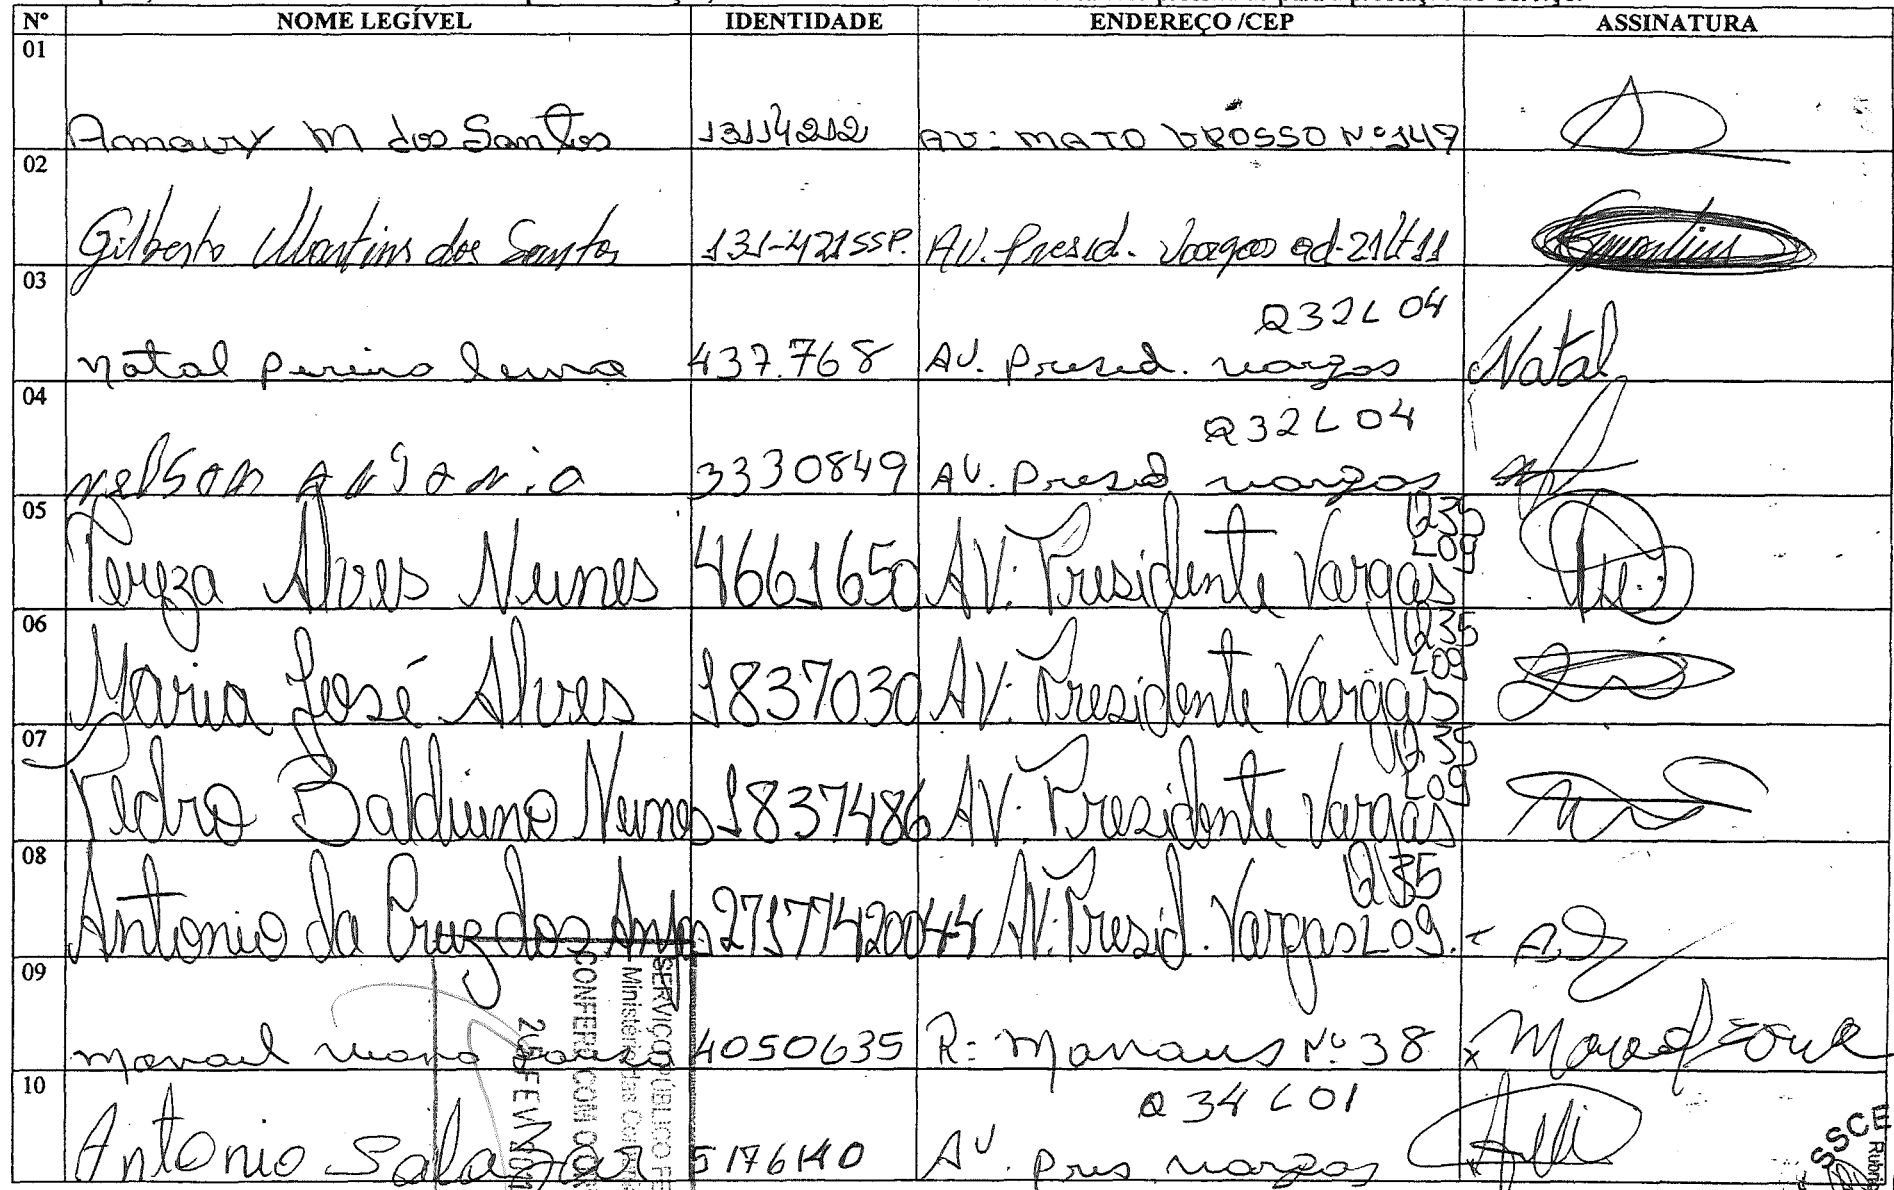 Nº NOME LEGÍVEL IDENTIDADE ENDEREÇO /CEP ASSINATURA
01 Amaury M dos Santos 13114212 AV: MATO GROSSO Nº 147
02 Gilberto Martins dos Santos 131-421 SSP. AV. Presid. Vargas qd-21 Lt 11
Q32 L 04
03 Natal Pereira 437.768 AV. Presid. vargas Natal
Q32 L 04
04 nelson antonio 3330849 AV. Presid vargas
Q35
L09
05 Tereza Alves Nunes 4661650 AV: Presidente Vargas
Q35
L09
06 Maria José Alves 1837030 AV: Presidente Vargas
Q35
L09
07 Pedro Balduino Nunes 1837486 AV: Presidente Vargas
Q 35
08 Antonio da Cruz dos Anjos 27177420044 AV: Presid. Vargas L 09.
09 manoel souza 4050635 R: Manaus Nº 38
Q 34 L 01
10 Antonio Salazar 5176140 AV. pres vargas
SERVIÇO PÚBLICO FE
Ministério das Co
CONFERE COM O
FEV
SSCE